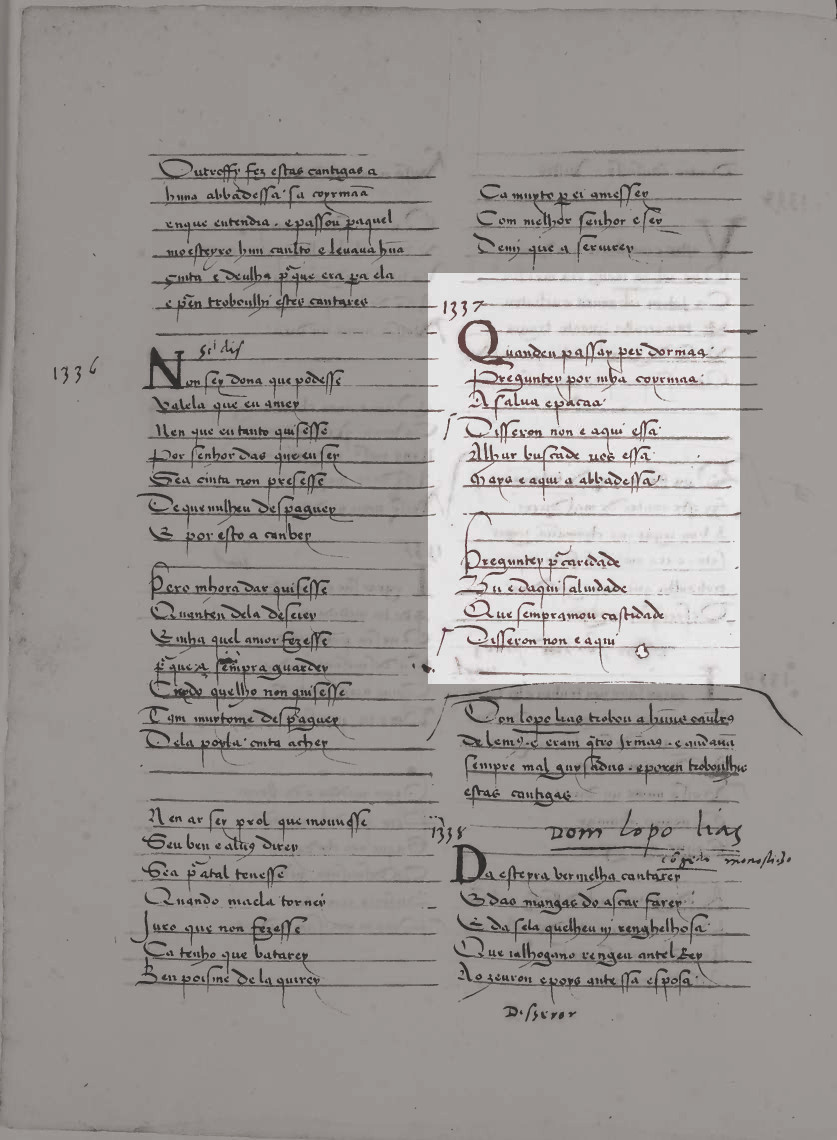 Outrossy fez estas cantigas a
huna abbadessa sa coyrmaã
enque entendia . epassou paquel
moesteyro hun caualro e leuaua hũa
çinta e deulha p̃ que era pa ela
e pẽn troboulhi estes cantares
1336
Non sey dona que podesse
Valela que eu amey
Nen que eu tanto quisesse
Por senhor das que eu sey
Sea cinta non presesse
De que milheu despaguey
E por esto a canbey
Pero mhora dar quisesse
Quanten dela deseiey
E mha quel amor fezesse
p̃ que sempra guardey
Cuydo quelho non quisesse
Tam muytome despaguey
Dela poyla cinta achey
Nen ar sey prol que mouuesse
Seu ben e aluus direy
Sea p̃ atal teuesse
Quando maela torney
Juro que non fezesse
Ca tenho que batarey
Ben poisme dela quirey
Ca muyto per ei amesser
Com melhor senhor e sey
Demj que a seruirey
1337
Quanden passey per dormaa
Preguntey por mha coyrmaa
A salua e pacaa
Disseron non e aqui essa
Alhur buscade uos essa
Mays e aqui a abbadessa
Preguntey p̃ caridade
Hu e daqui saluidade
Que sempramou castidade
Disseron non e aqui
Don lopo lias trobou a hũus caualros
de lemos . e eram q̃tro Jrmãos . e andauã
sempre mal guysados . e poren troboulhis
estas cantigas
1338
Dom lopo lias
Da esteyra vermelha cantarey
E das mangas do ascar farey
E da sela quelheu uj renghelhosa
Que ialhogano rengeu antel Rey
Ao zeuron e poys ante ssa esposa